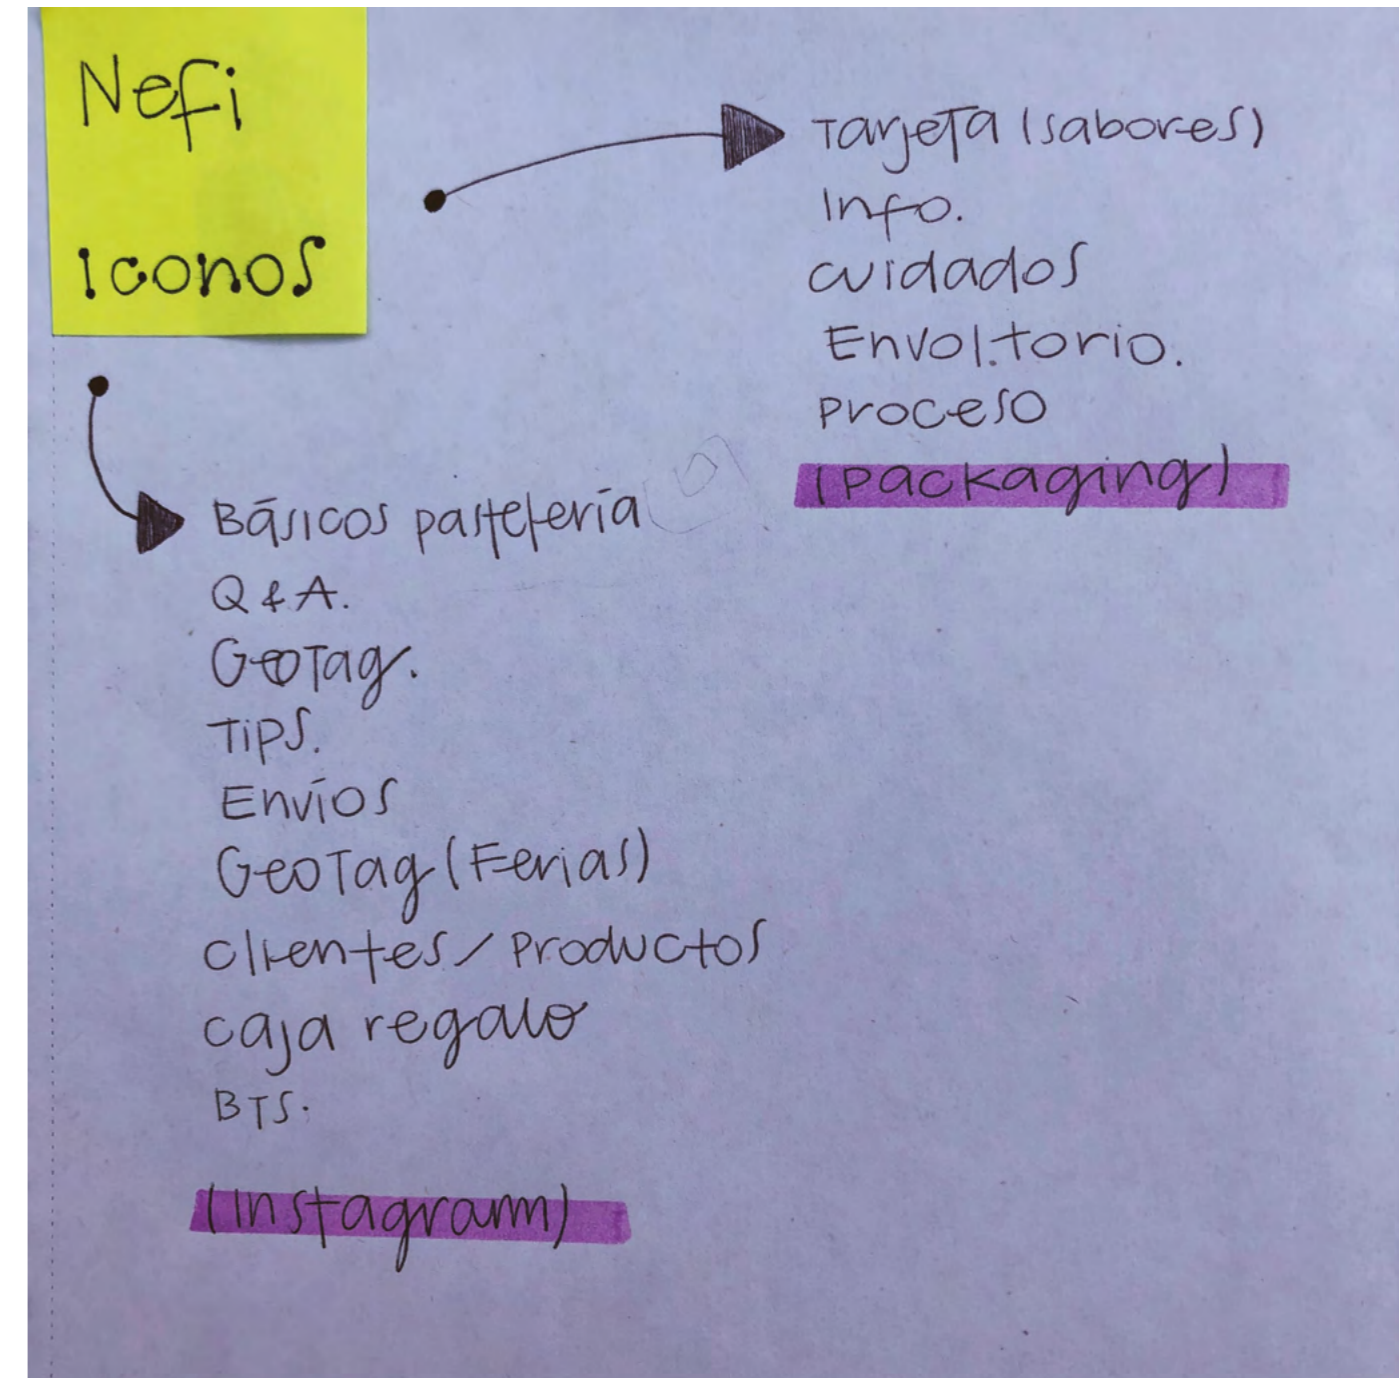 Nefi
iconos
Tarjeta (sabores)
Info.
cuidados
Envol.torio.
Proceso
(Packaging)
Básicos pastelería
Q & A.
GeoTag.
Tips.
Envíos
GeoTag (Ferias)
clientes / Productos
caja regalo
BTS.
(Instagram)